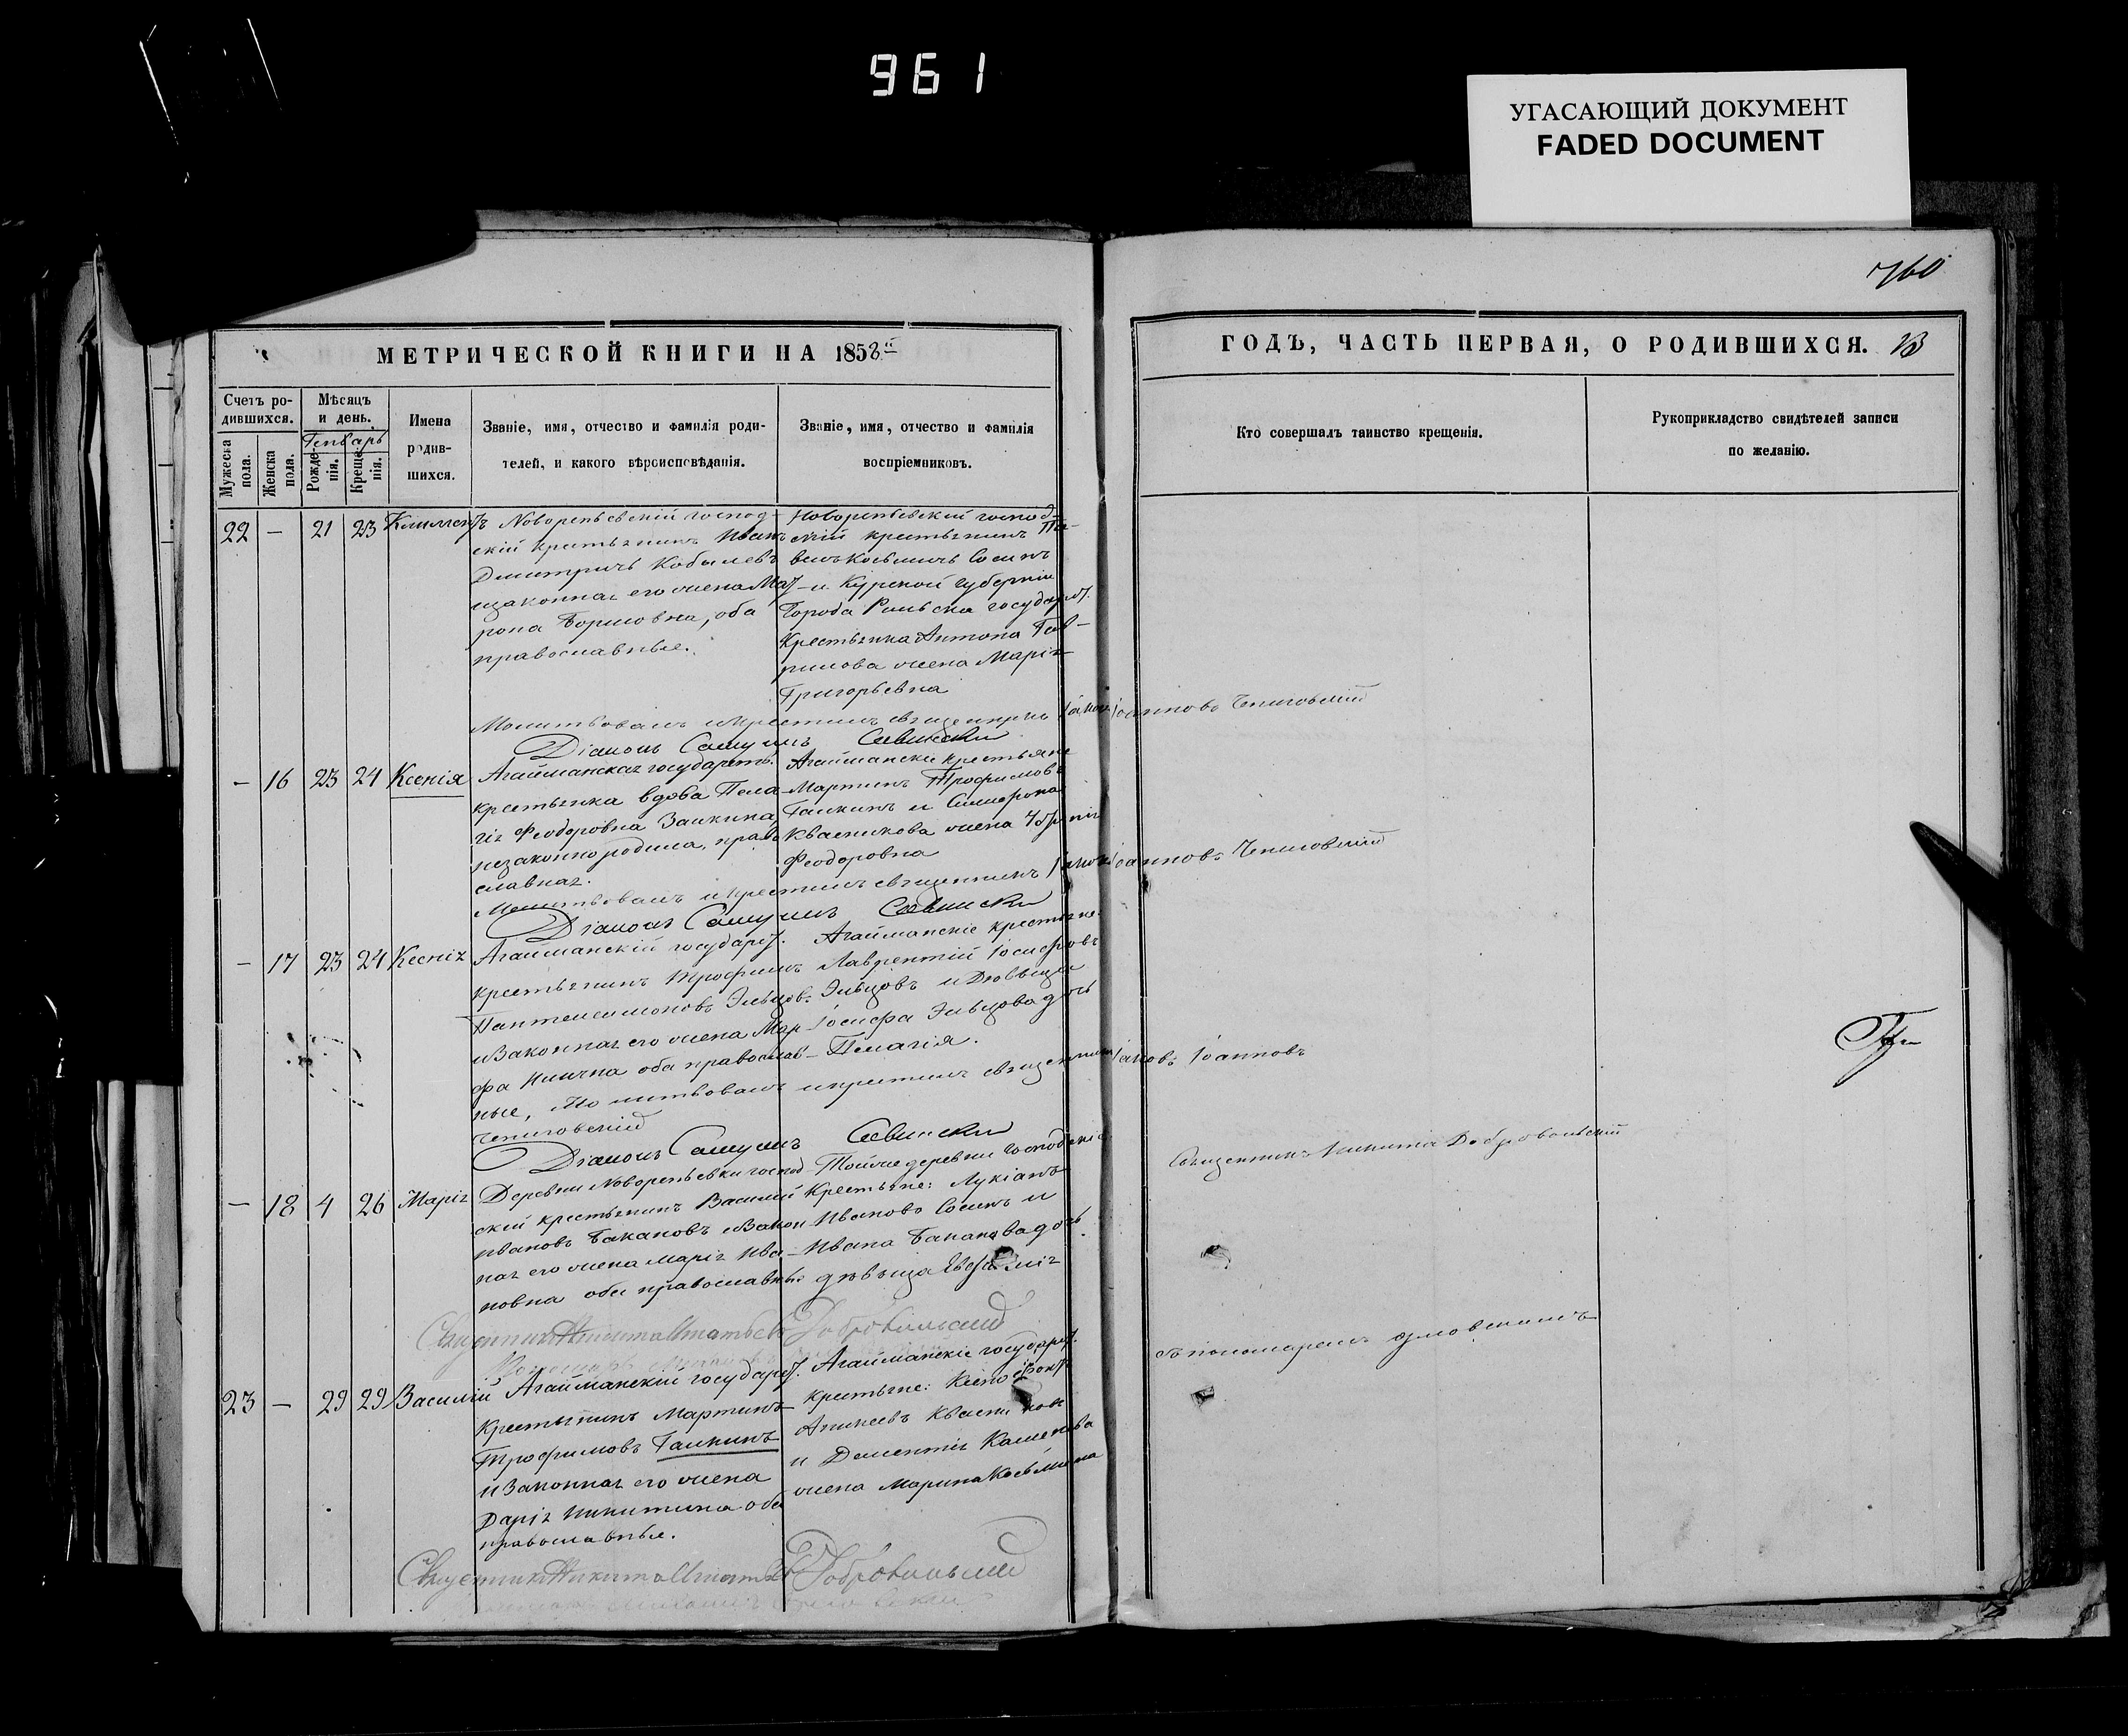 961
УГАСАЮЩИЙ ДОКУМЕНТ
FADED DOCUMENT
760
МЕТРИЧЕСКОЙ КНИГИ НА 1858й
ГОДЪ, ЧАСТЬ ПЕРВАЯ, О РОДИВШИХСЯ.
Счетъ ро-
дившихся.
Мужеска
пола.
Женска
пола.
Мѣсяцъ
и день.
Генварь
Рожде-
нія.
Креще-
нія.
Имена
родив-
шихся.
Званіе, имя, отчество и фамилія роди-
телей, и какого вѣроисповѣданія.
Званіе, имя, отчество и фамилія
воспріемниковъ.
Кто совершалъ таинство крещенія.
Рукоприкладство свидѣтелей записи
по желанію.
22 — 21 23 Климентъ
Новорепьевскій господ-
скій крестьянинъ Иванъ
Дмитричъ Кобылевъ
изаконная его жена Мат-
рона Борисовна, оба
православные.
Новорепьевский господ-
скій крестьянинъ Па-
велъ Косьмичъ Сосинъ
и Курской губерніи
Города Рыльска государст.
Крестьянина Антона Гав-
рилова жена Марія
Григорьевна
Молитвовалъ икрестилъ священникъ Іаковъ Іоанновъ
Діаконъ Самуилъ
— 16 23 24 Ксенія
Агайманская государств.
крестьянка вдова Пела-
гія Феодоровна Заикина,
незаконно родила, право-
славная.
Агаймански крестьяне
Мартинъ Трофимовъ
Галкинъ и
Квасникова жена
Феодоровна
Молитвовалъ икрестилъ священникъ Іаковъ Іоанновъ
Діаконъ Самуилъ
— 17 23 24 Ксенія
Агайманскій государст.
крестьянинъ Трофимъ
Пантелеимоновъ Эльцовъ
изаконная его жена Мар-
фа Илична оба православ-
ные,
Агайманскіе крестьяне
Лаврентій Іосифовъ
Эльцовъ и Дѣвица
Іосифа Эльцова дочь
Пелагія.
Молитвовалъ икрестилъ священникъ Іаковъ Іоанновъ
Діаконъ Самуилъ
— 18 4 26 Марія
Деревни Новорепьевки господ-
скій крестьянинъ Василий
Ивановъ Бакановъ изакон-
ная его жена Марія Ива-
новна оба православные
Тойже деревни господскіе
Крестьяне: Лукіанъ
Ивановъ Сосинъ и
Ивана Баканова дочь
дѣвица Евфимія
Священникъ Никита Добровольскій
Священникъ Никита Игнатьевъ Добровольскій
23 — 29 29 Василий
Агайманский государст.
Крестьянинъ Мартинъ
Трофимовъ Галкинъ
изаконная его жена
Дарія Никитина оба
православные.
Агайманскіе государст.
крестьяне: Ксенофонтъ
Алексеевъ Квасников
и Дементія Каменева
жена Марина Косьмина
съ пономаремъ
Священникъ Никита Игнатьевъ Добровольскій